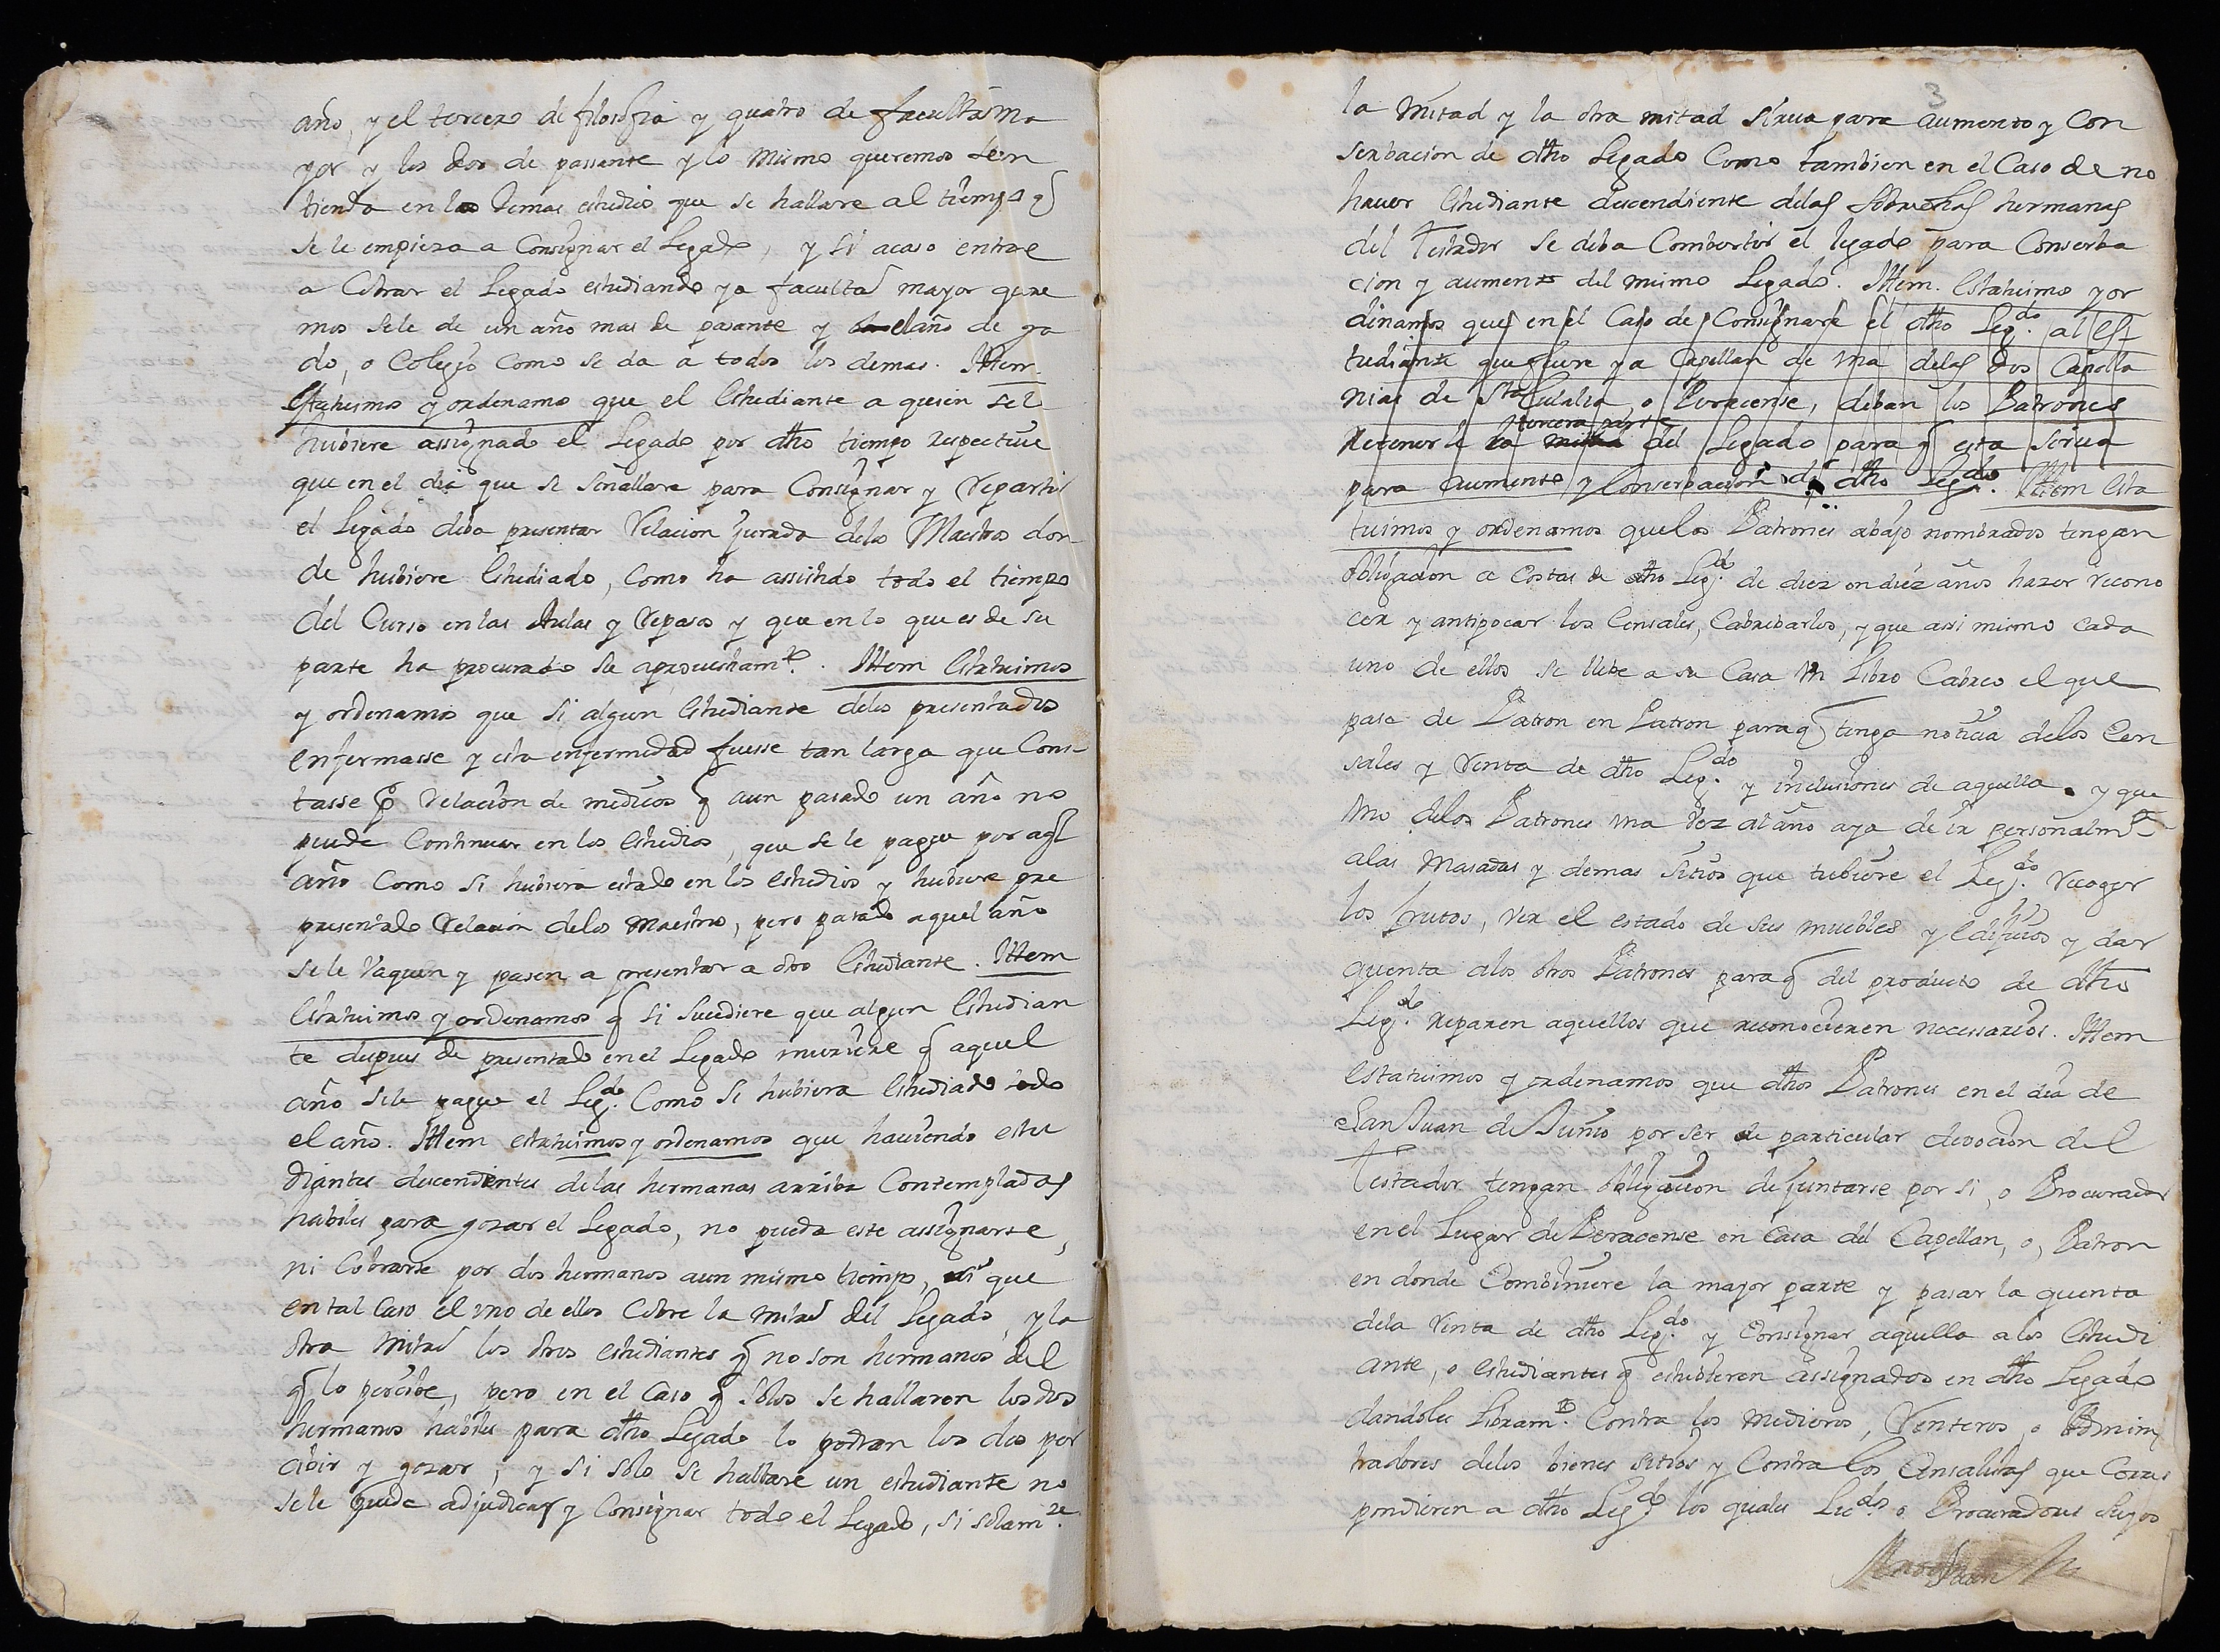 año, y el tercero de filosofia y quatro de facultad ma
yor y los dos de passante y lo mismo queremos se en
tienda en los demas estudios que se hallare al tiempo q
se le empieza a Consignar el Legado, y si acaso entrare
a Cobrar el Legado estudiando ya facultad mayor quere
mos sele de un año mas de pasante y el año de gra
do, o Colegio como se da a todos los demas. Ittem.
Estatuimos y ordenamos que el Estudiante a quien sele
hubiere assignado el Legado por dho tiempo respective
que en el dia que se señallare para Consignar y repartir
el Legado deba presentar relacion jurada delos Maestros don
de hubiere Estudiado, como ha assistido todo el tiempo
del Curso en las Aulas y repasos y que en lo que es de su
parte ha procurado su aprovecham.to. Ittem Estatuimos
y ordenamos que si algun Estudiante delos presentados
enfermasse y esta enfermedad fuesse tan larga que Cons
tasse p relacion de medicos q aun pasado un año no
puede Continuar en los Estudios, que se le pague por aql
año Como si hubiera estado en los estudios y hubiere pre
presentado relacion delos Maestros, pero pasado aquel año
sele vaquen y pasen a presentar a otro Estudiante. Ittem
Estatuimos y ordenamos q si sucediere que algun Estudian
te despues de presentado en el Legado muriere q aquel
año sele pague el Leg.do Como si hubiera Estudiado todo
el año. Ittem estatuimos y ordenamos que haviendo estu
diantes descendientes delas hermanas arriba Contempladas
habiles para gozar el Legado, no pueda este assignarse,
ni Cobrarse por dos hermanos aun mismo tiempo, si que
en tal Caso el vno de ellos Cobre la mitad del Legado, y la
otra mitad los otros estudiantes q no son hermanos del
q lo percibe, pero en el Caso q solos se hallaren los dos
hermanos habiles para dho Legado lo podran los dos per
cibir y gozar, y si solo se hallare un estudiante no
sele puede adjudicar y Consignar todo el Legado, si solam.te
3
la mitad y la otra mitad sirva para aumento y Con
serbacion de dho Legado Como tambien en el Caso de no
haver Estudiante descendiente delas sobredhas hermanas
del Testador se deba Combertir el legado para Conserba
cion y aumento del mismo Legado. Ittem. Estatuimos y or
dinamos que en el Caso de Consignarse el dho Leg.do al Es
tudiante que fuere ya Capellan de vna delas dos Capella
nias de Sta Eulalia o Peracense, deban los Patrones
retenerse la tercera part del Legado para q esta sirva
para aumento y Conserbacion de dho Leg.do. Ittem Esta
tuimos y ordenamos que los Patrones abajo nombrados tengan
obligacion a Costas de dho Leg.do de diez en diez años hazer recono
cer y antipocar los Censales, Cabribarlos, y que assi mismo cada
uno de ellos se llebe a su Casa vn Libro Cabreo el que
pase de Patron en Patron para q tenga noticia delos Cen
sales y renta de dho Leg.do y inclusiones de aquella. y que
vno delos Patrones vna vez al año aya de ir personalm.te
alas Masadas y demas sitios que tubiere el Leg.do recoger
los frutos, ver el estado de sus muebles y Edificios y dar
quenta alos otros Patrones para q del producto de dho
Leg.do reparen aquellos que reconocieren necessarios. Ittem
Estatuimos y ordenamos que dhos Patrones en el dia de
San Juan de Junio por ser de particular devocion del
Testador tengan obligacion de juntarse por si, o Procurador
en el Lugar de Peracense en Casa del Capellan, o, Patron
en donde Combiniere la mayor parte y pasar la quenta
dela renta de dho Leg.do y Consignar aquella alos Estudi
ante, o estudiantes q estubieren assignados en dho Legado
dandoles Libram.to Contra los Medieros, Renteros, o Adminis
tradores delos bienes sitios y Contra los Censalistas que Corres
pondieren a dho Leg.do los quales Leg.dos o Procuradores suyos